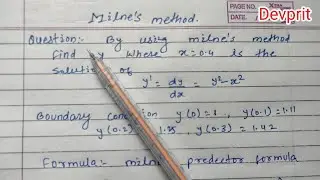 Milne's method.
PAGE NO.
DATE
Devprit
Question:- By using milne's method
find y where x=0.4 is the
Solution of
y' = dy/dx = y²-x²
Boundary condition y(0)=1, y(0.1)=1.11
y(0.2)=1.25, y(0.3)=1.42
Formula:- milne predector formula